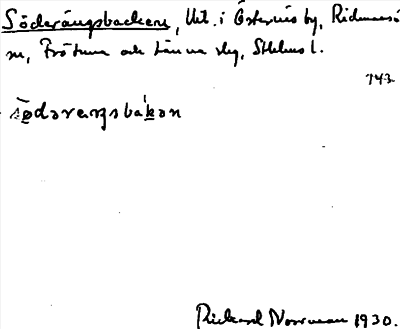 Söderängsbacken, Utl. i Österuis by, Ridmansö
sn, Frötuna och Länna slg, Sthlms l.
743
södəraŋsbakən
Rickard Norrman 1930.